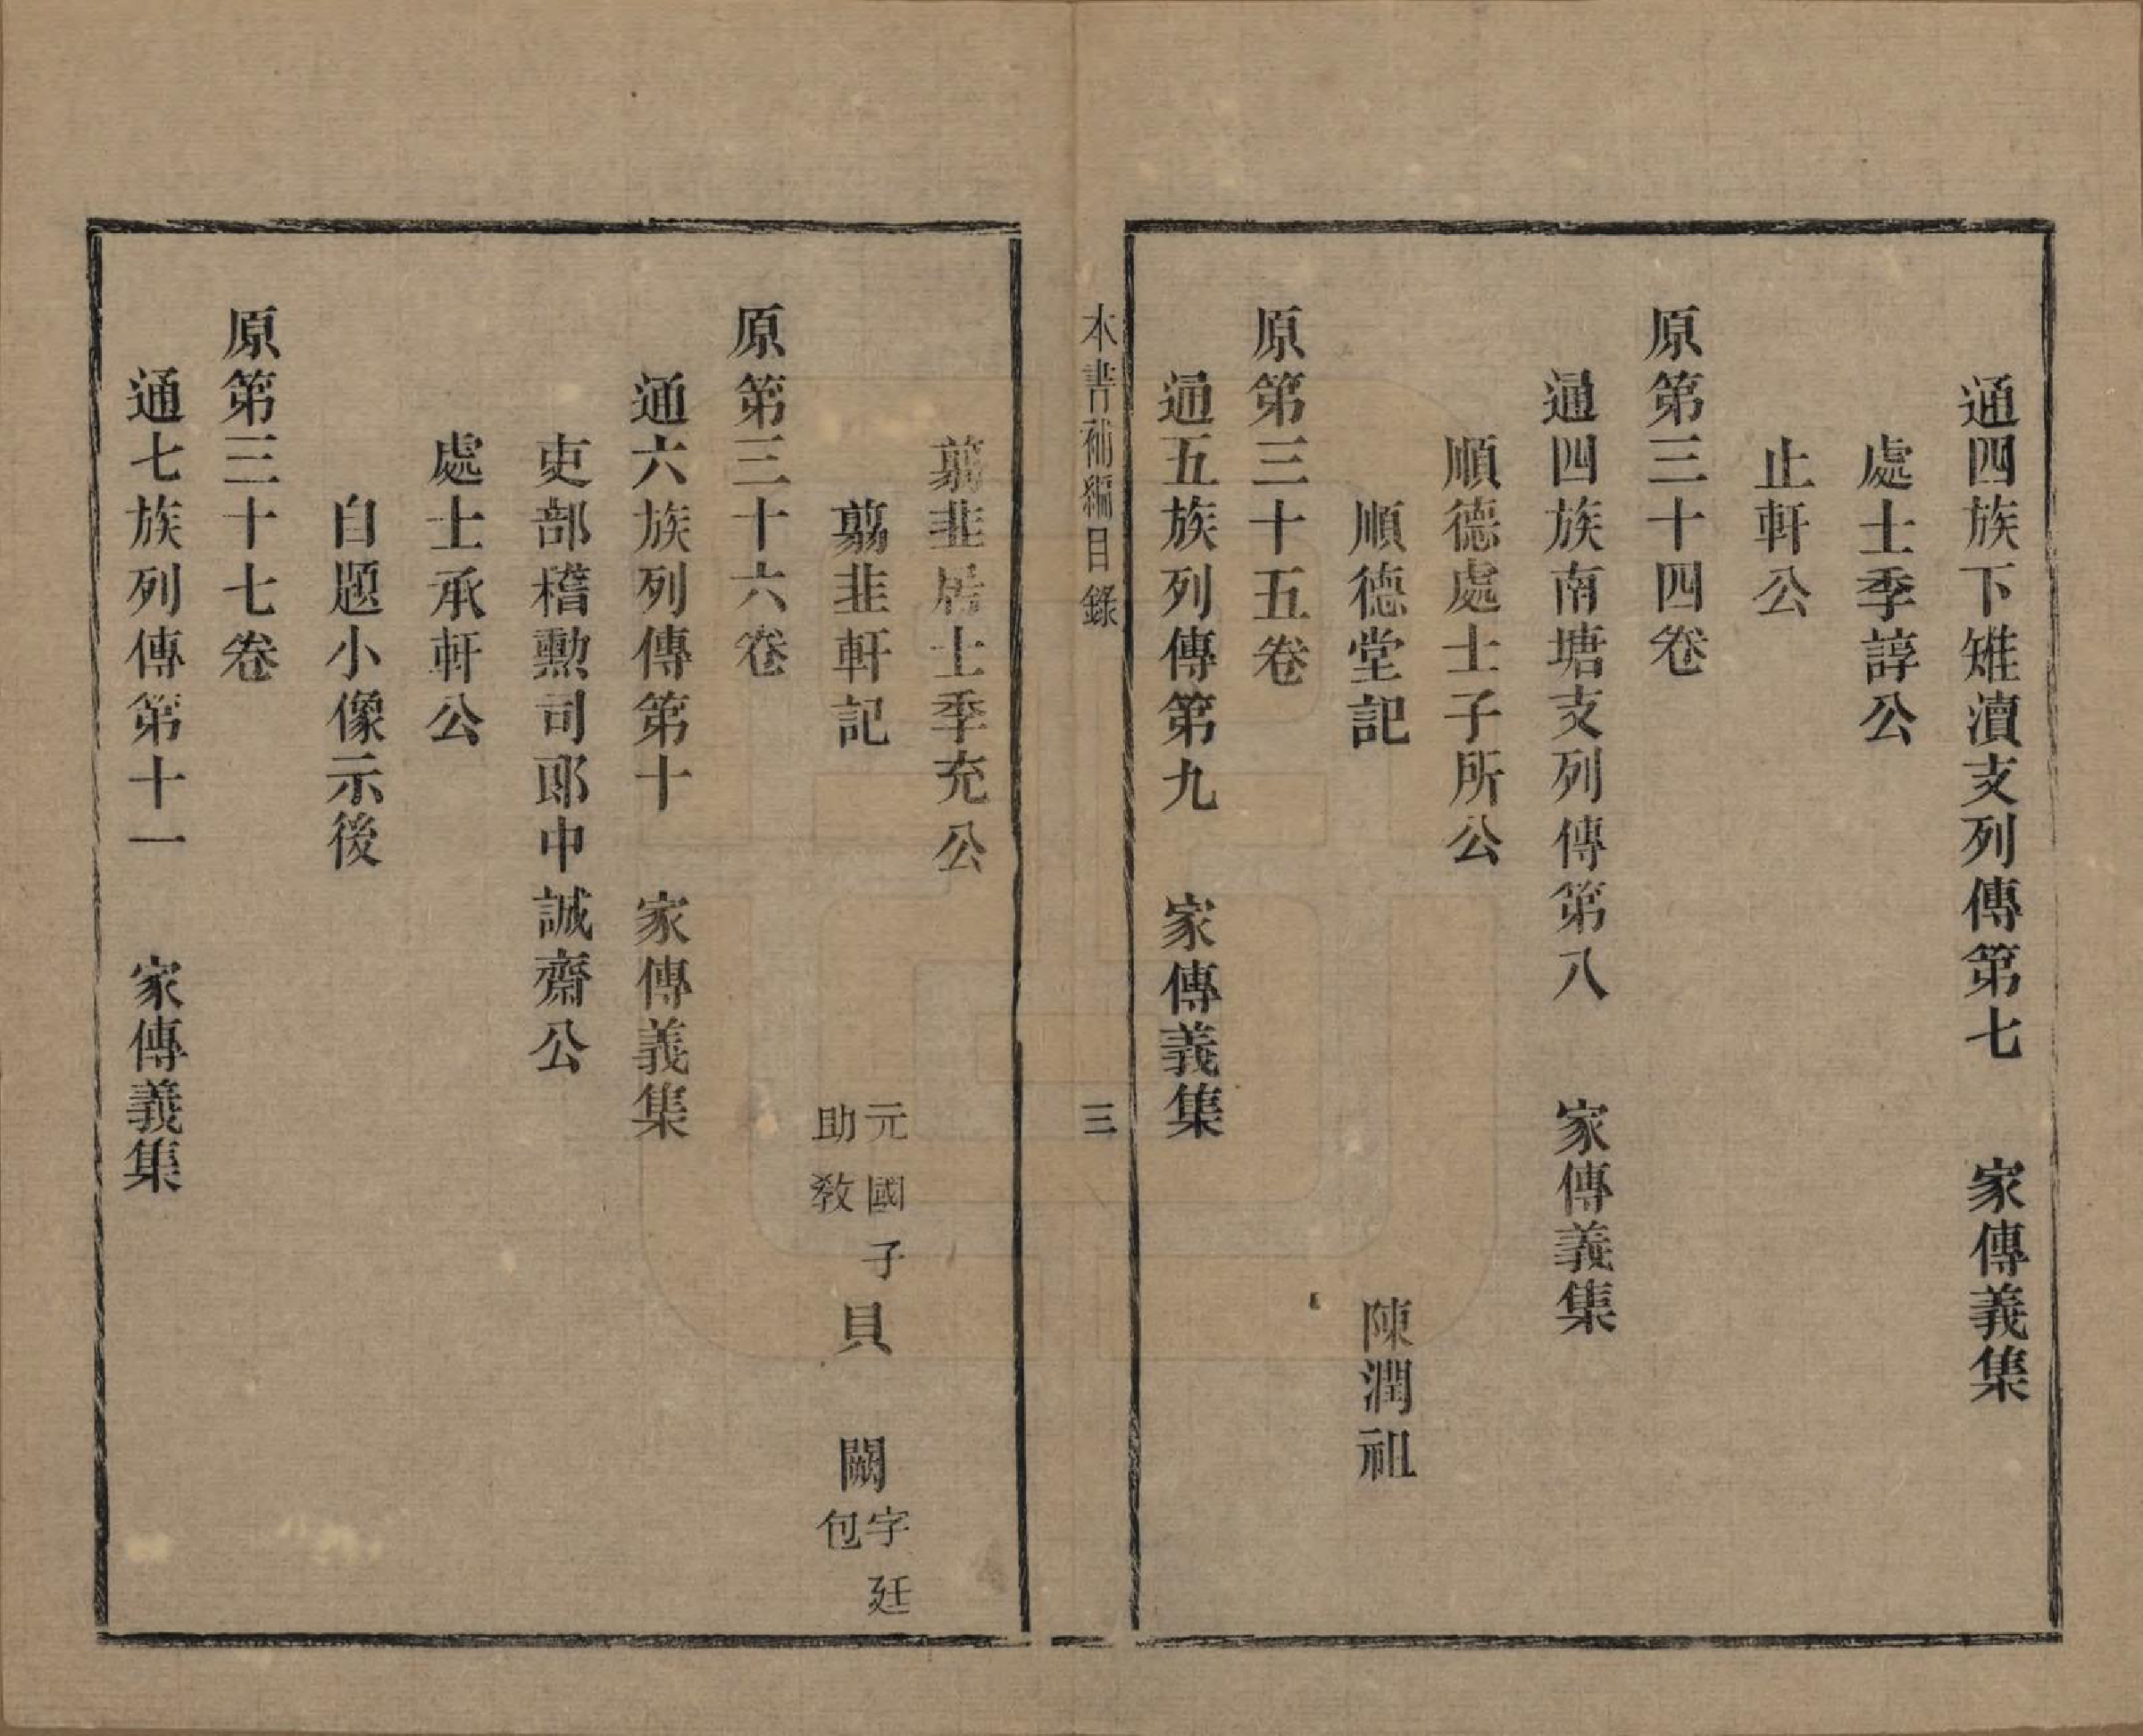 通四族下雉瀆支列傳第七　家傳義集
處士季諄公
止軒公
原第三十四卷
通四族南塘支列傳第八　家傳義集
順德處士子所公
順德堂記　陳潤祖
原第三十五卷
通五族列傳第九　家傳義集
本書補編目錄　三
翦韭居士季充公
翦韭軒記　元國子助敎貝　闕字廷包
原第三十六卷
通六族列傳第十　家傳義集
吏部稽勲司郎中誠齋公
處士承軒公
自題小像示後
原第三十七卷
通七族列傳第十一　家傳義集